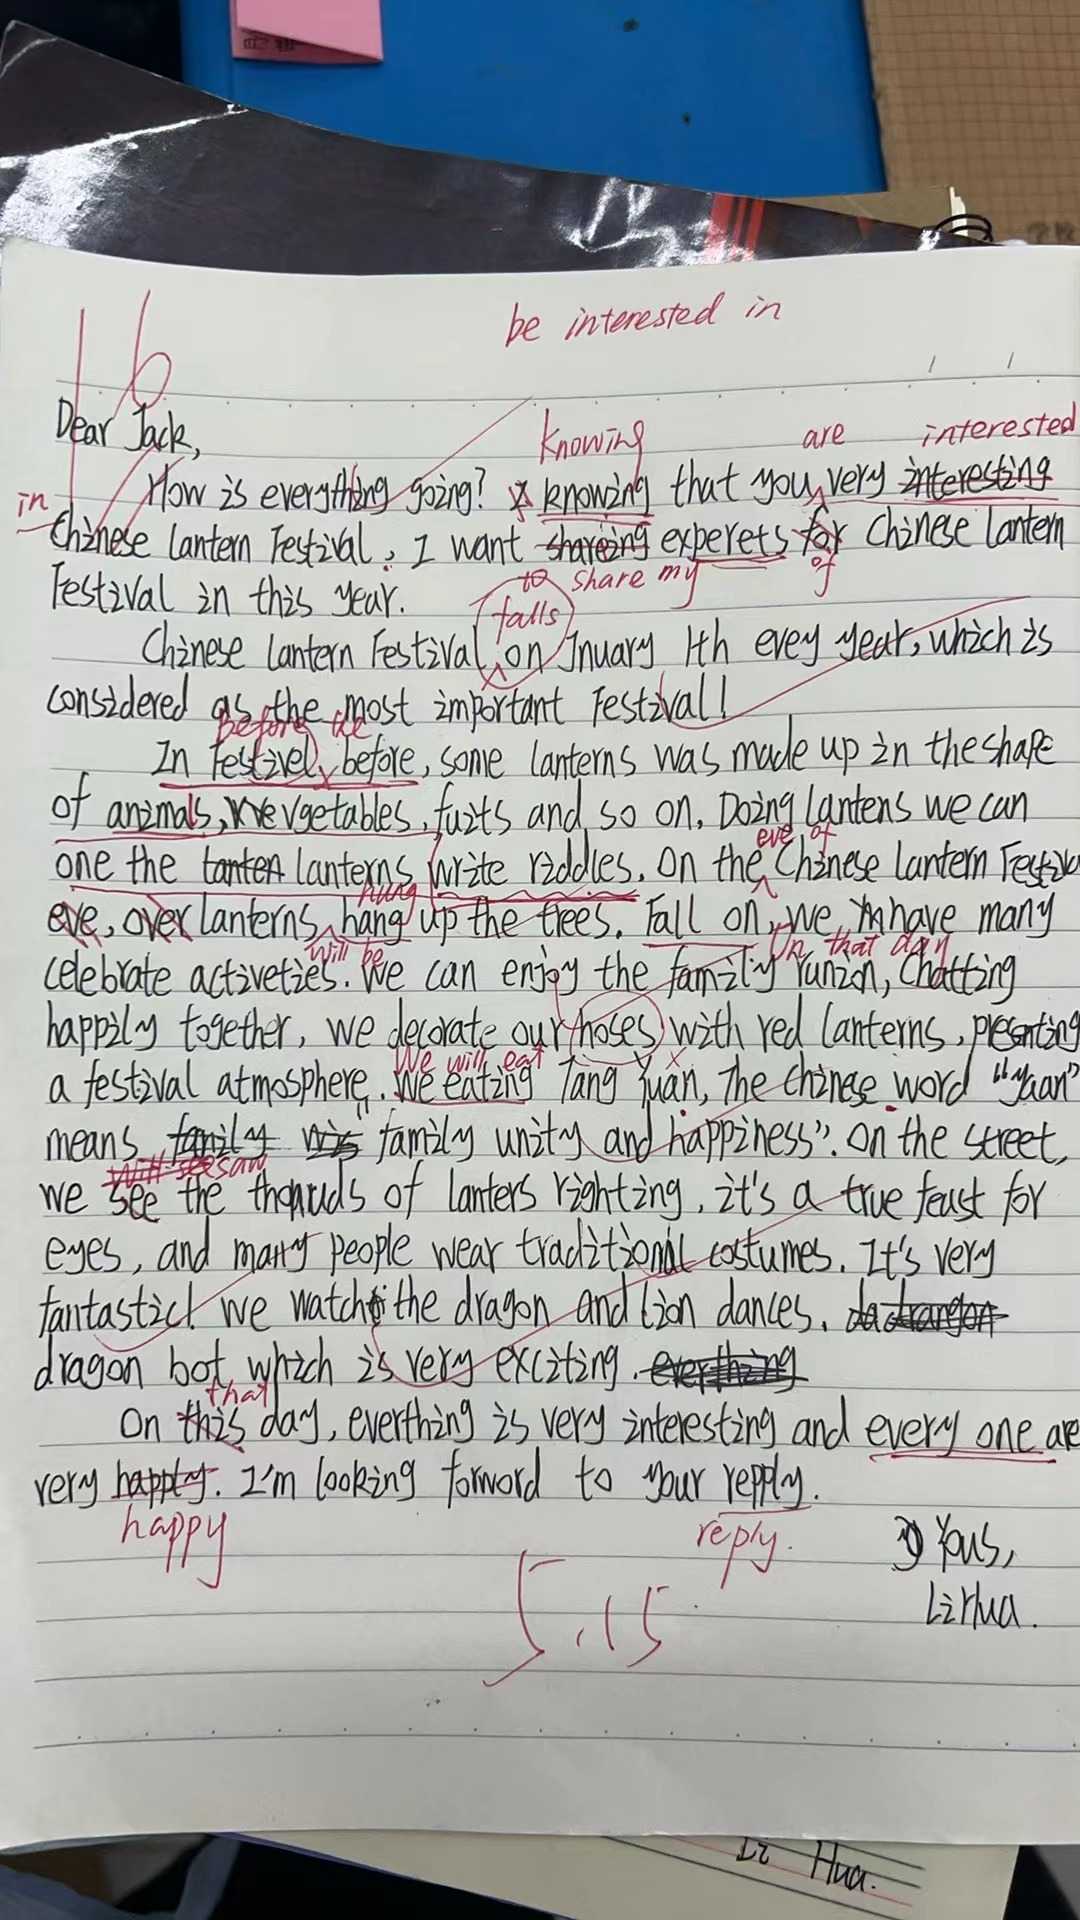 be interested in
16
Dear Jack,
Knowing are interested
How is everything going? knowing that you very interesting
in
Chinese lantern Festival. I want shareing experets for Chinese lantern
to share my of
Festival in this year.
falls
Chinese lantern Festival on Jnuary 1th evey year, which is
considered as the most important Festival!
Before the
In Festivel before, some lanterns was made up in the shape
of animals, vevgetables, fuits and so on. Doing lantens we can
eve of
one the lanterns write riddles. On the Chinese lantern Festiv
hung
eve, over lanterns hang up the trees. Fall on, we have many
will be On that day
celebrate activeties. We can enjoy the family runion, Chatting
happily together, we decorate our hoses with red lanterns, presenting
We will eat
a festival atmosphere. We eating Tang Yuan, The Chinese word "Yaan"
means family "family unity and happiness". On the street,
will see saw
we see the of lanters righting, it's a true feast for
eyes, and many people wear traditional costumes. It's very
fantastic! we watch the dragon and lion dances.
dragon bot, which is very exciting. everthing
that
On this day, everthing is very interesting and every one are
very happly. I'm looking forward to your repply.
happy reply.
Yous,
Li Hua.
5.15
Li Hua.